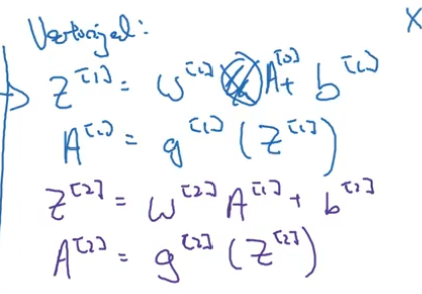 Vectorized: X
Z^[1] = W^[1] A^[0] + b^[1]
A^[1] = g^[1] (Z^[1])
Z^[2] = W^[2] A^[1] + b^[2]
A^[2] = g^[2] (Z^[2])